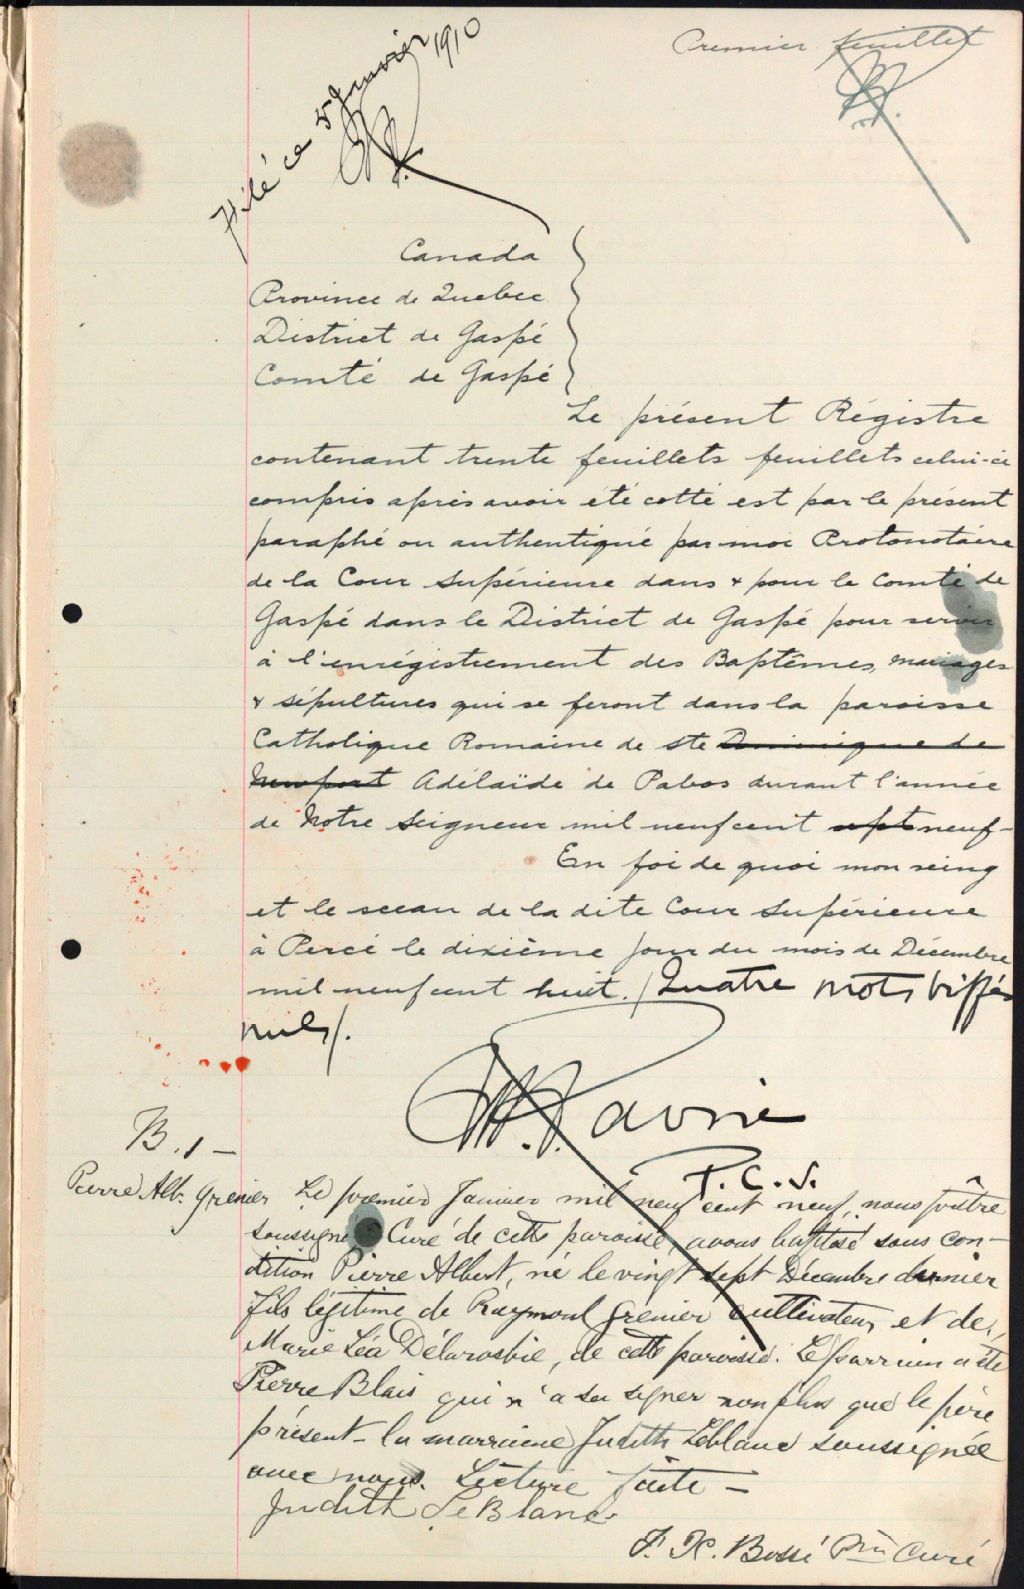 Premier feuillet
Filé ce 5 Janvier 1910
Canada
Province de Quebec
District de Gaspé
Comté de Gaspé
Le présent Régistre
contenant trente feuillets feuillets celui-ci
compris après avoir été cotté est par le présent
paraphé ou authentiqué par moi Protonotaire
de la Cour Supérieure dans & pour le Comté de
Gaspé dans le District de Gaspé pour servir
à l'enrégistrement des Baptêmes, mariages
& sépultures qui se feront dans la paroisse
Catholique Romaine de Ste Dominique de
Newport Adélaïde de Pabos durant l'année
de Notre Seigneur mil neuf cent sept neuf-
En foi de quoi mon seing
et le sceau de la dite Cour Supérieure
à Percé le dixième jour du mois de Décembre
mil neuf cent huit. / Quatre mots biffés
nuls /.
Lavoie
P.C.S.
B. 1 -
Pierre Alb. Grenier
Le premier Janvier mil neuf cent neuf, nous prêtre
soussigné Curé de cette paroisse, avons baptisé sous con-
dition Pierre Albert, né le vingt sept Décembre dernier
fils légitime de Raymond Grenier cultivateur et de
Marie Léa Délarosbie, de cette paroisse. Le parrain a été
Pierre Blais qui n'a su signer non plus que le père
présent - la marraine Judith Leblanc soussignée
avec nous. Lecture faite -
Judith LeBlanc
F. X. Bossé Ptre Curé